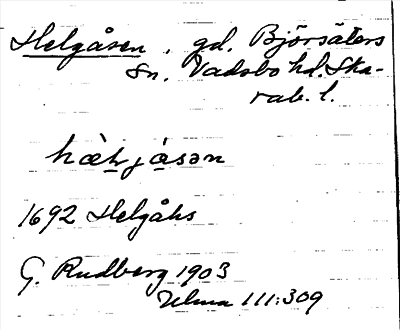 Helgåsen, gd. Björsäters
sn. Vadsbo hd. Ska-
rab. l.
hæ̀tɟa̱sən
1692 Helgåhs
G. Rudberg 1903
Ulma 111:309